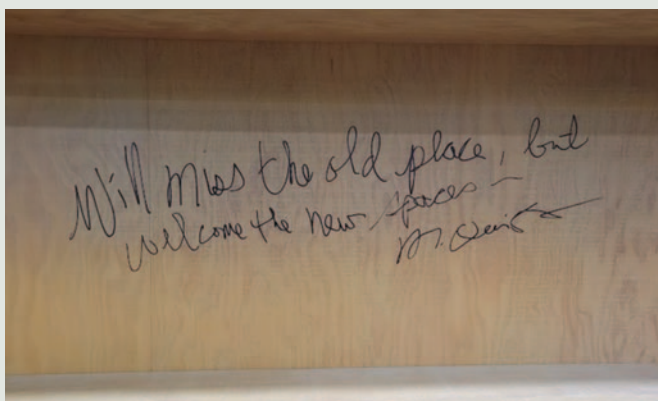 Will miss the old place, but
welcome the new spaces –
M.